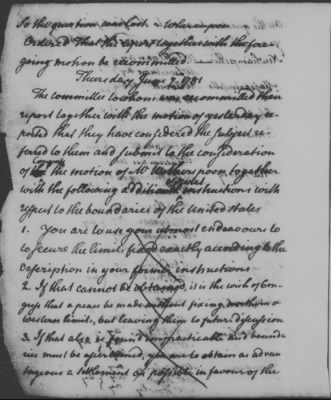 So the question was lost. Whereupon
Ordered That the report together with the fore
going motion be recommitted.
Thursday June 7. 1781
The committee to whom was recommitted their
report together with the motion of yesterday re-
ported that they have considered the subject re-
ferred to them and submit to the consideration
of Congress the motion of Mr Witherspoon together
with the following additional instructions with
respect to the boundaries of the United States
1. You are to use your utmost endeavours to
to secure the limits fixed exactly according to the
description in your former instructions
2. If that cannot be obtained, it is the wish of Con-
gress that a peace be made without fixing northern &
western limits, but leaving them to future discussion
3. If that also is found impracticable and bounda
ries must be ascertained, you are to obtain as advan
tageous a settlement as possible in favour of the